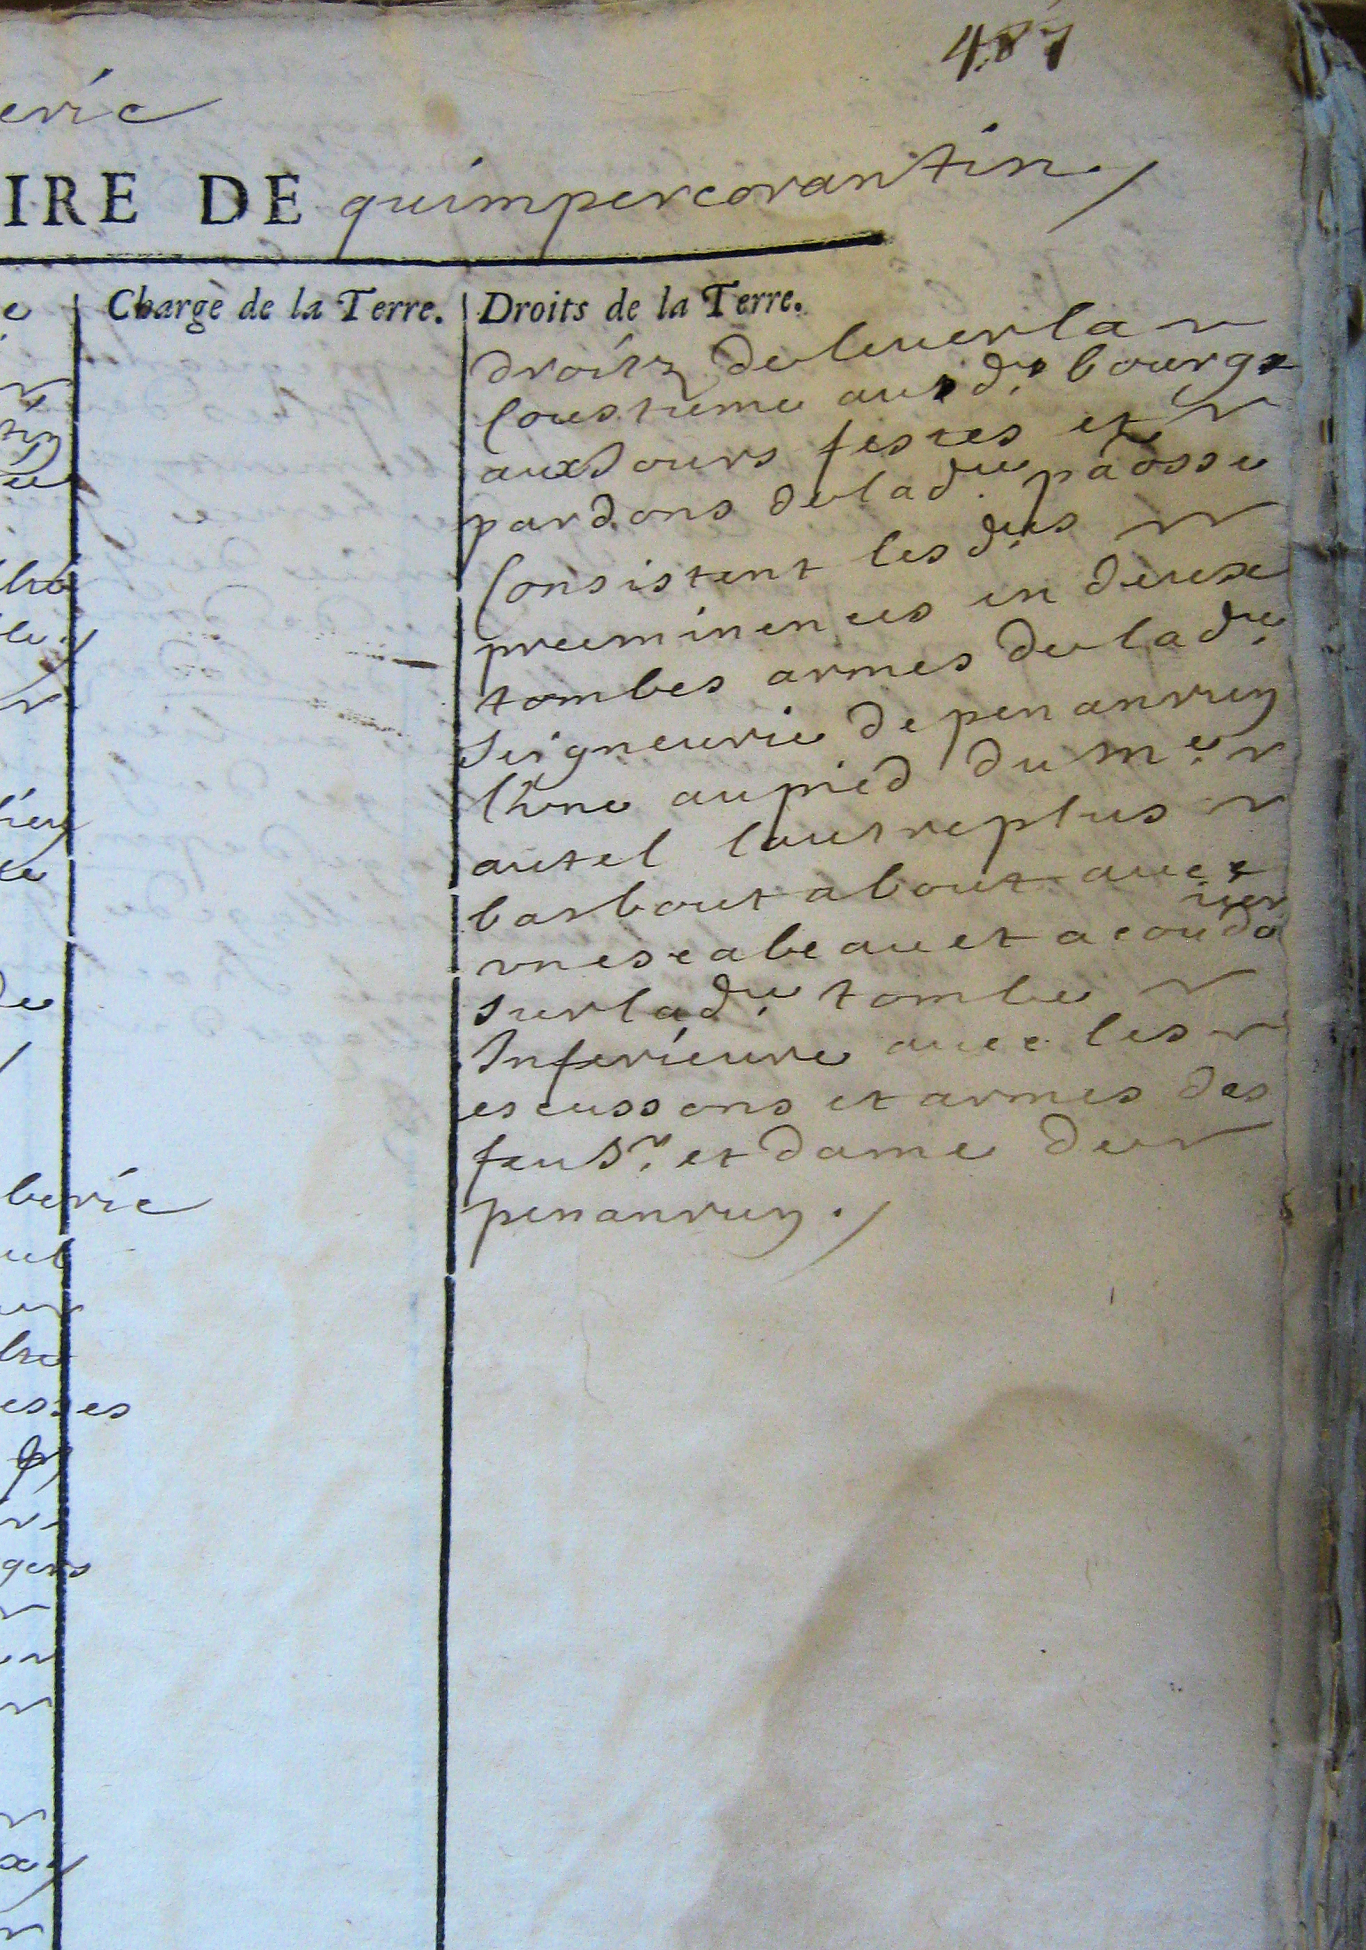 487
eric
IRE DE quimpercorantin
Charge de la Terre. Droits de la Terre.
droitz de leuer la
Coustume ausd. bourgs
aux Jours festes et
pardons de lad.e paosse
Consistent les d.es
preeminences en deux
tombes armes de lad.e
seigneurie de penanrun
l'vne au pied du me.
autel lautre plus
bas bout a bout auec
vn escabeau et acoudouer
sur lad.e tombe
Inferieure auec les
escussons et armes des
feu Sr. et dame de
penanrun.
beric
esses
gens